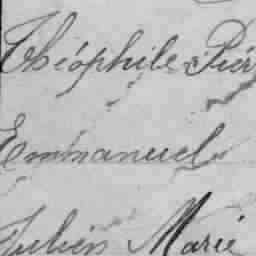 Théophile Pier
Emmanuel
Julien Marie